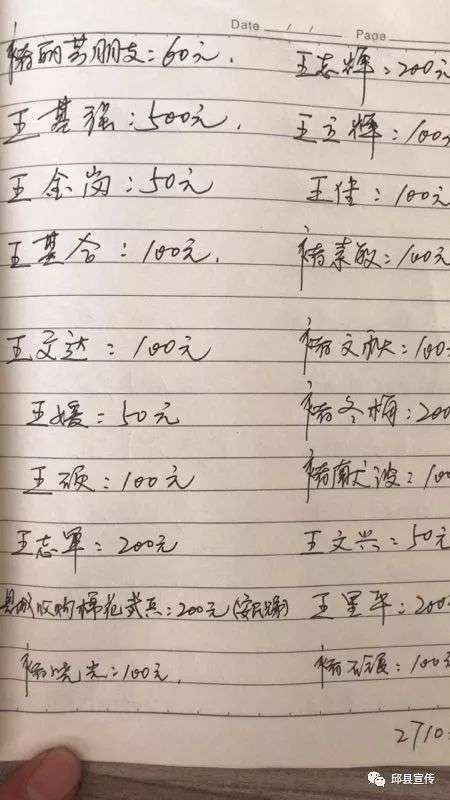 Date Page
褚丽芳朋友:60元.
王志辉:200元
王基强:500元.
王立辉:100元
王金岗:50元
王佳:100元
王基合:100元.
褚素敏:100元
王文达:100元
褚文献:100
王媛=50元
褚冬梅:200
王硕:100元
褚献波:100
王志军:200元
王文兴:50元
县城收购棉花武兵:200元
王星华:200
褚晓光:100元.
100元
2710
邱县宣传